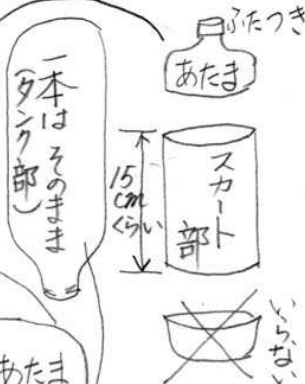 ふたつき
あたま
一本は そのまま
(タンク部)
15
cm
くらい
スカート
部
いらない
あたま